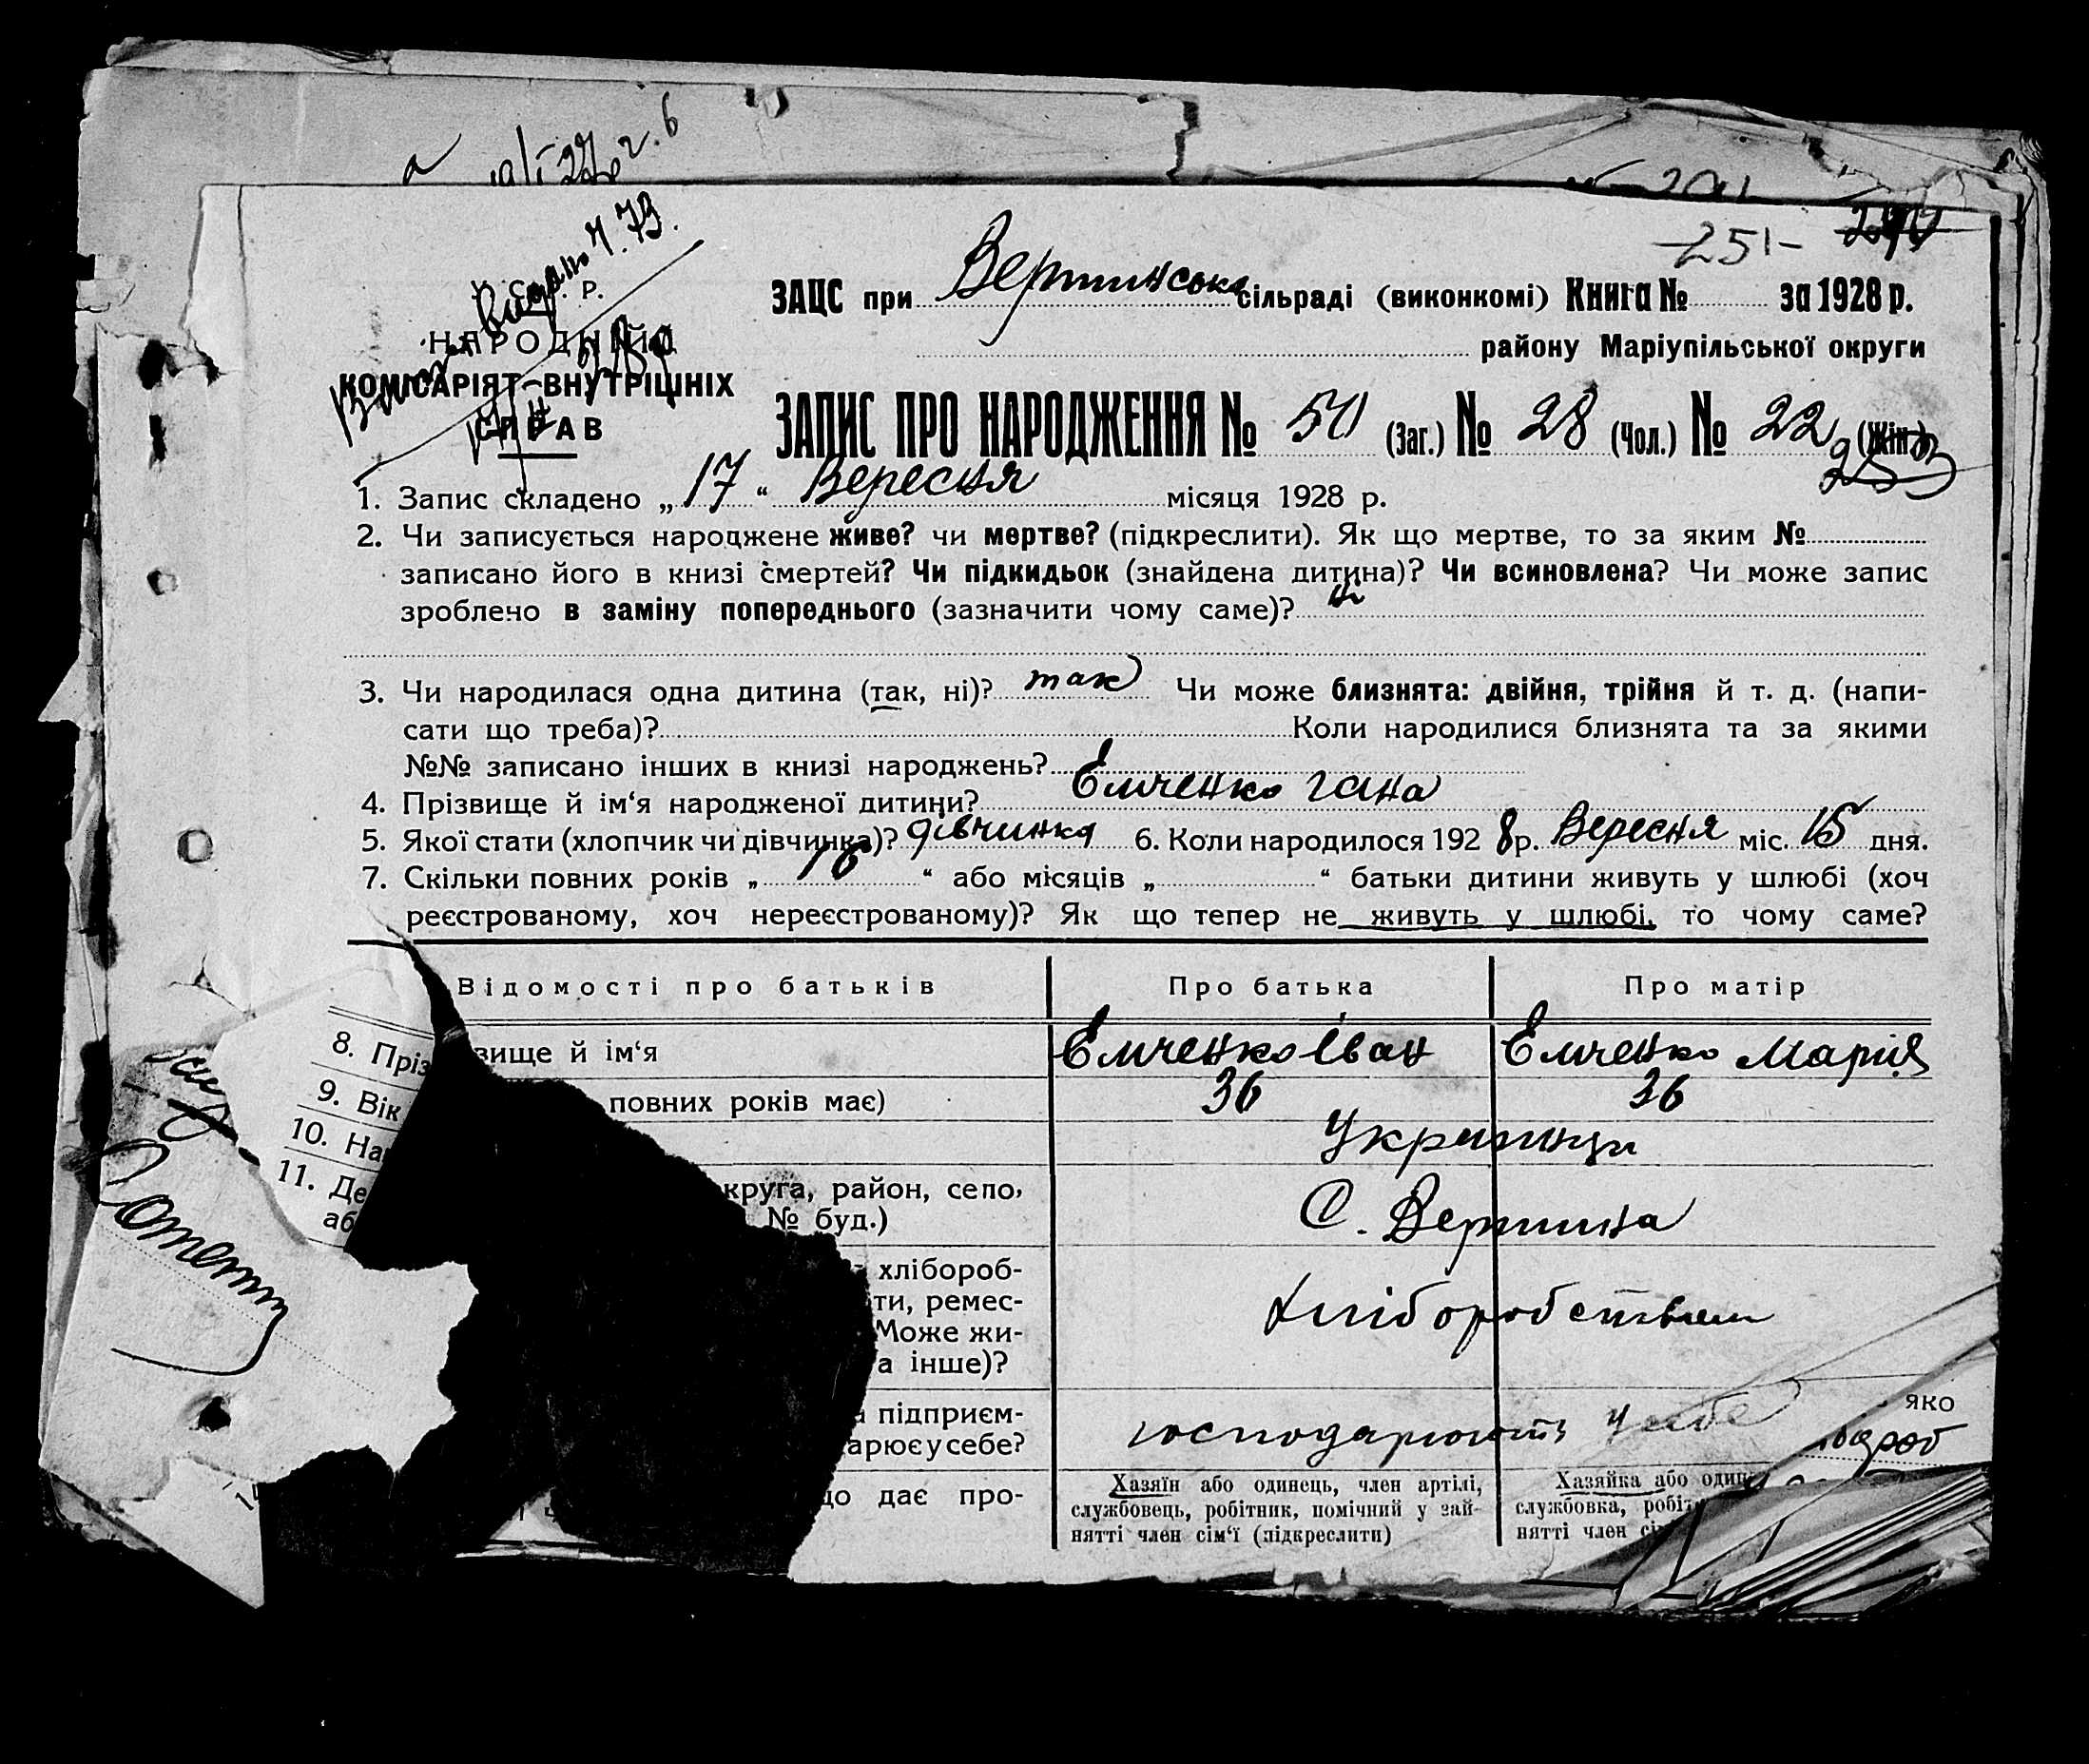 -251-
У. С. Р. Р.
НАРОДНІЙ
КОМІСАРІЯТ ВНУТРІШНІХ
СПРАВ
ЗАЦС при Вершинська сільраді (виконкомі) Книга № за 1928 р.
району Маріупільської округи
ЗАПИС ПРО НАРОДЖЕННЯ № 50 (Заг.) № 28 (Чол.) № 22 (Жін.)
1. Запис складено „17“ Вересня місяця 1928 р.
2. Чи записується народжене живе? чи мертве? (підкреслити). Як що мертве, то за яким №
записано його в книзі смертей? Чи підкидьок (знайдена дитина)? Чи всиновлена? Чи може запис
зроблено в заміну попереднього (зазначити чому саме)?
3. Чи народилася одна дитина (так, ні)? так Чи може близнята: двійня, трійня й т. д. (напи-
сати що треба)? Коли народилися близнята та за якими
№№ записано інших в книзі народжень?
4. Прізвище й ім‘я народженої дитини? Емченко Гана
5. Якої стати (хлопчик чи дівчинка)? дівчинка 6. Коли народилося 1928 р. Вересня міс. 15 дня.
7. Скільки повних років „16“ або місяців „ “ батьки дитини живуть у шлюбі (хоч
реєстрованому, хоч нереєстрованому)? Як що тепер не живуть у шлюбі, то чому саме?
Відомості про батьків Про батька Про матір
8. Прізвище й ім‘я Емченко Іван Емченко Марія
9. Вік повних років має) 36 36
10. На Українци
11. Де круга, район, село,
аб № буд.) С. Вершина
хлібороб-
ти, ремес-
Може жи-
а інше)? Хліборобством
підприєм-
арює у себе? господарюють у себе
яко
що дає про-
Хазяїн або одинець, член артілі,
службовець, робітник, помічний у зай-
нятті член сім‘ї (підкреслити)
Хазяйка або один
службовка, робіт
нятті член сі